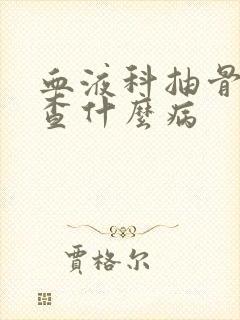 血液科抽骨
查什麼病
賈格尔